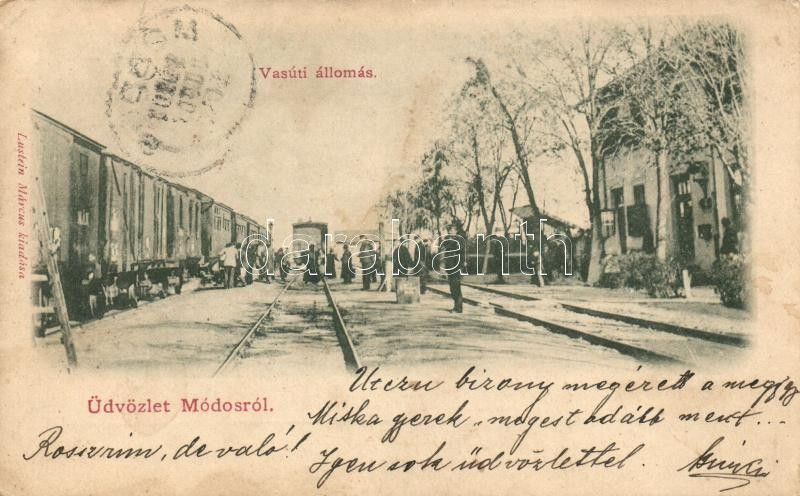 Vasúti állomás.
Lustein Márcus kiadása
darabanth
Üdvözlet Módosról.
Uczu bizony megérett a meggy
Miska gyerek, megest odább ment...
Rosszrim, de való!
Igen sok üdvözlettel.